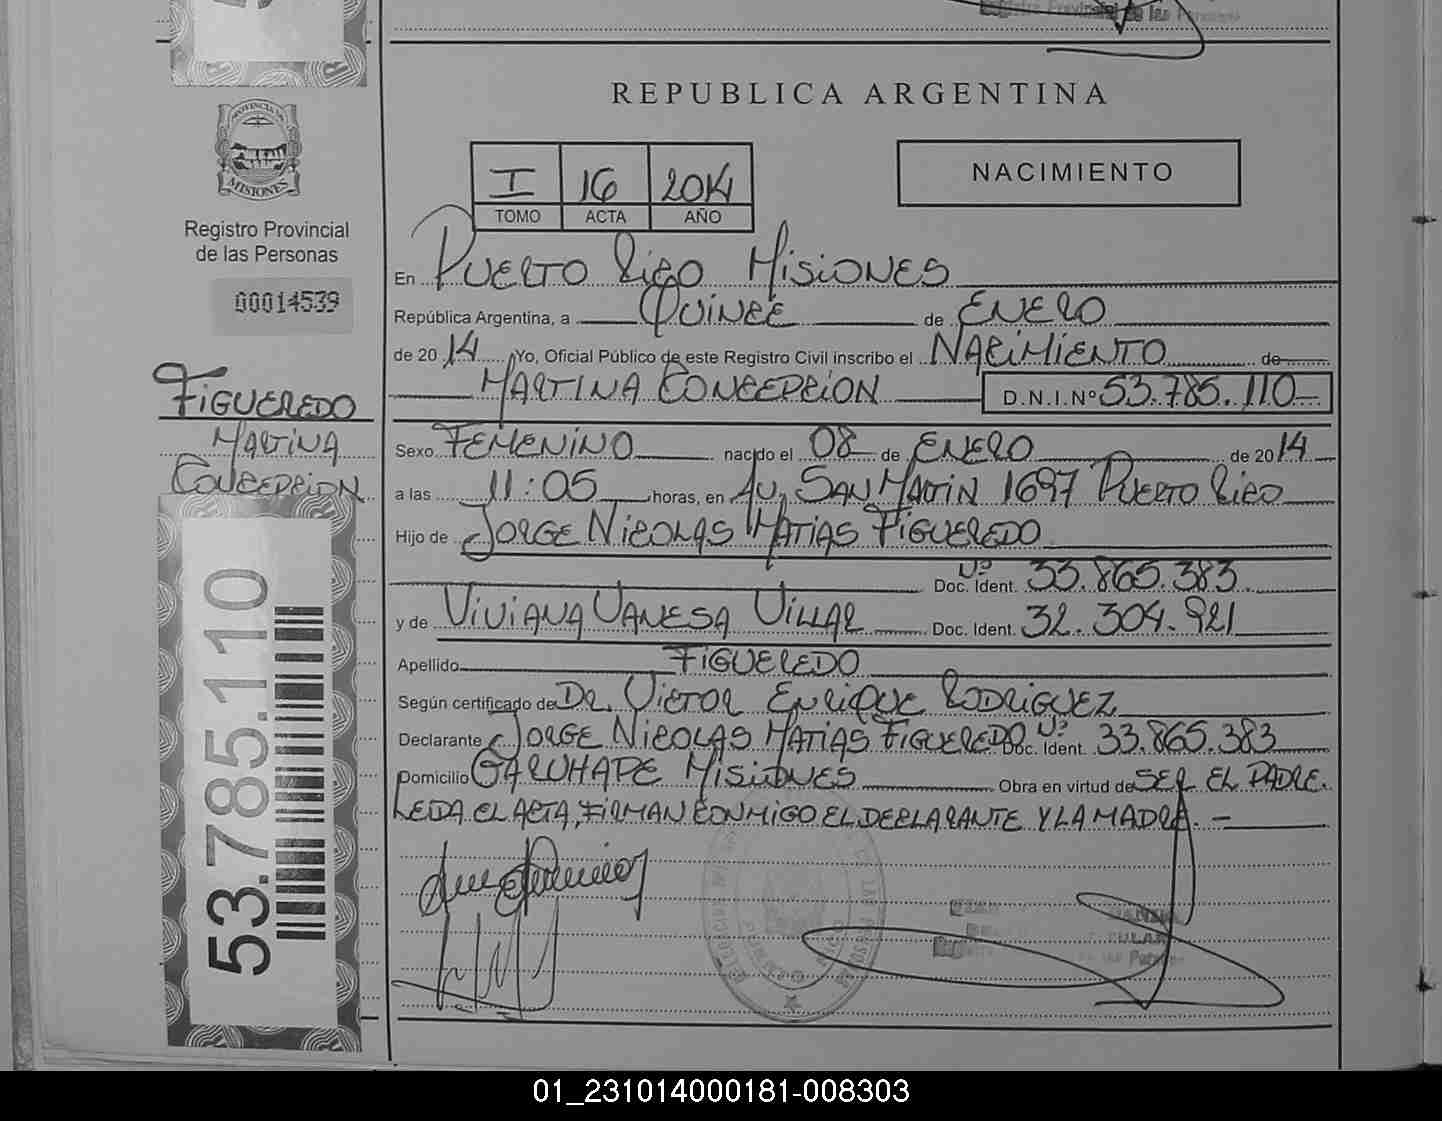 REPUBLICA ARGENTINA
PROVINCIA DE
MISIONES
Registro Provincial
de las Personas
00014539
FIGUEREDO
MARTINA
CONCEPCION
53.785.110
I 16 2014
TOMO ACTA AÑO
NACIMIENTO
En PUERTO RICO MISIONES
República Argentina, a QUINCE de ENERO
de 20 14 Yo, Oficial Público de este Registro Civil inscribo el NACIMIENTO de
MARTINA CONCEPCION D.N.I.Nº 53.785.110
Sexo FEMENINO nacido el 08 de ENERO de 20 14
a las 11:05 horas, en AV. SAN MARTIN 1697 PUERTO RICO
Hijo de JORGE NICOLAS MATIAS FIGUEREDO
Doc. Ident. Nº 33.865.383
y de VIVIANA VANESA VILLAR Doc. Ident. 32.304.921
Apellido FIGUEREDO
Según certificado de DR. VICTOR ENRIQUE RODRIGUEZ
Declarante JORGE NICOLAS MATIAS FIGUEREDO Doc. Ident. Nº 33.865.383
Domicilio GARUHAPE MISIONES Obra en virtud de SER EL PADRE.
LEIDA EL ACTA, FIRMAN CONMIGO EL DECLARANTE Y LA MADRE. -
01_231014000181-008303